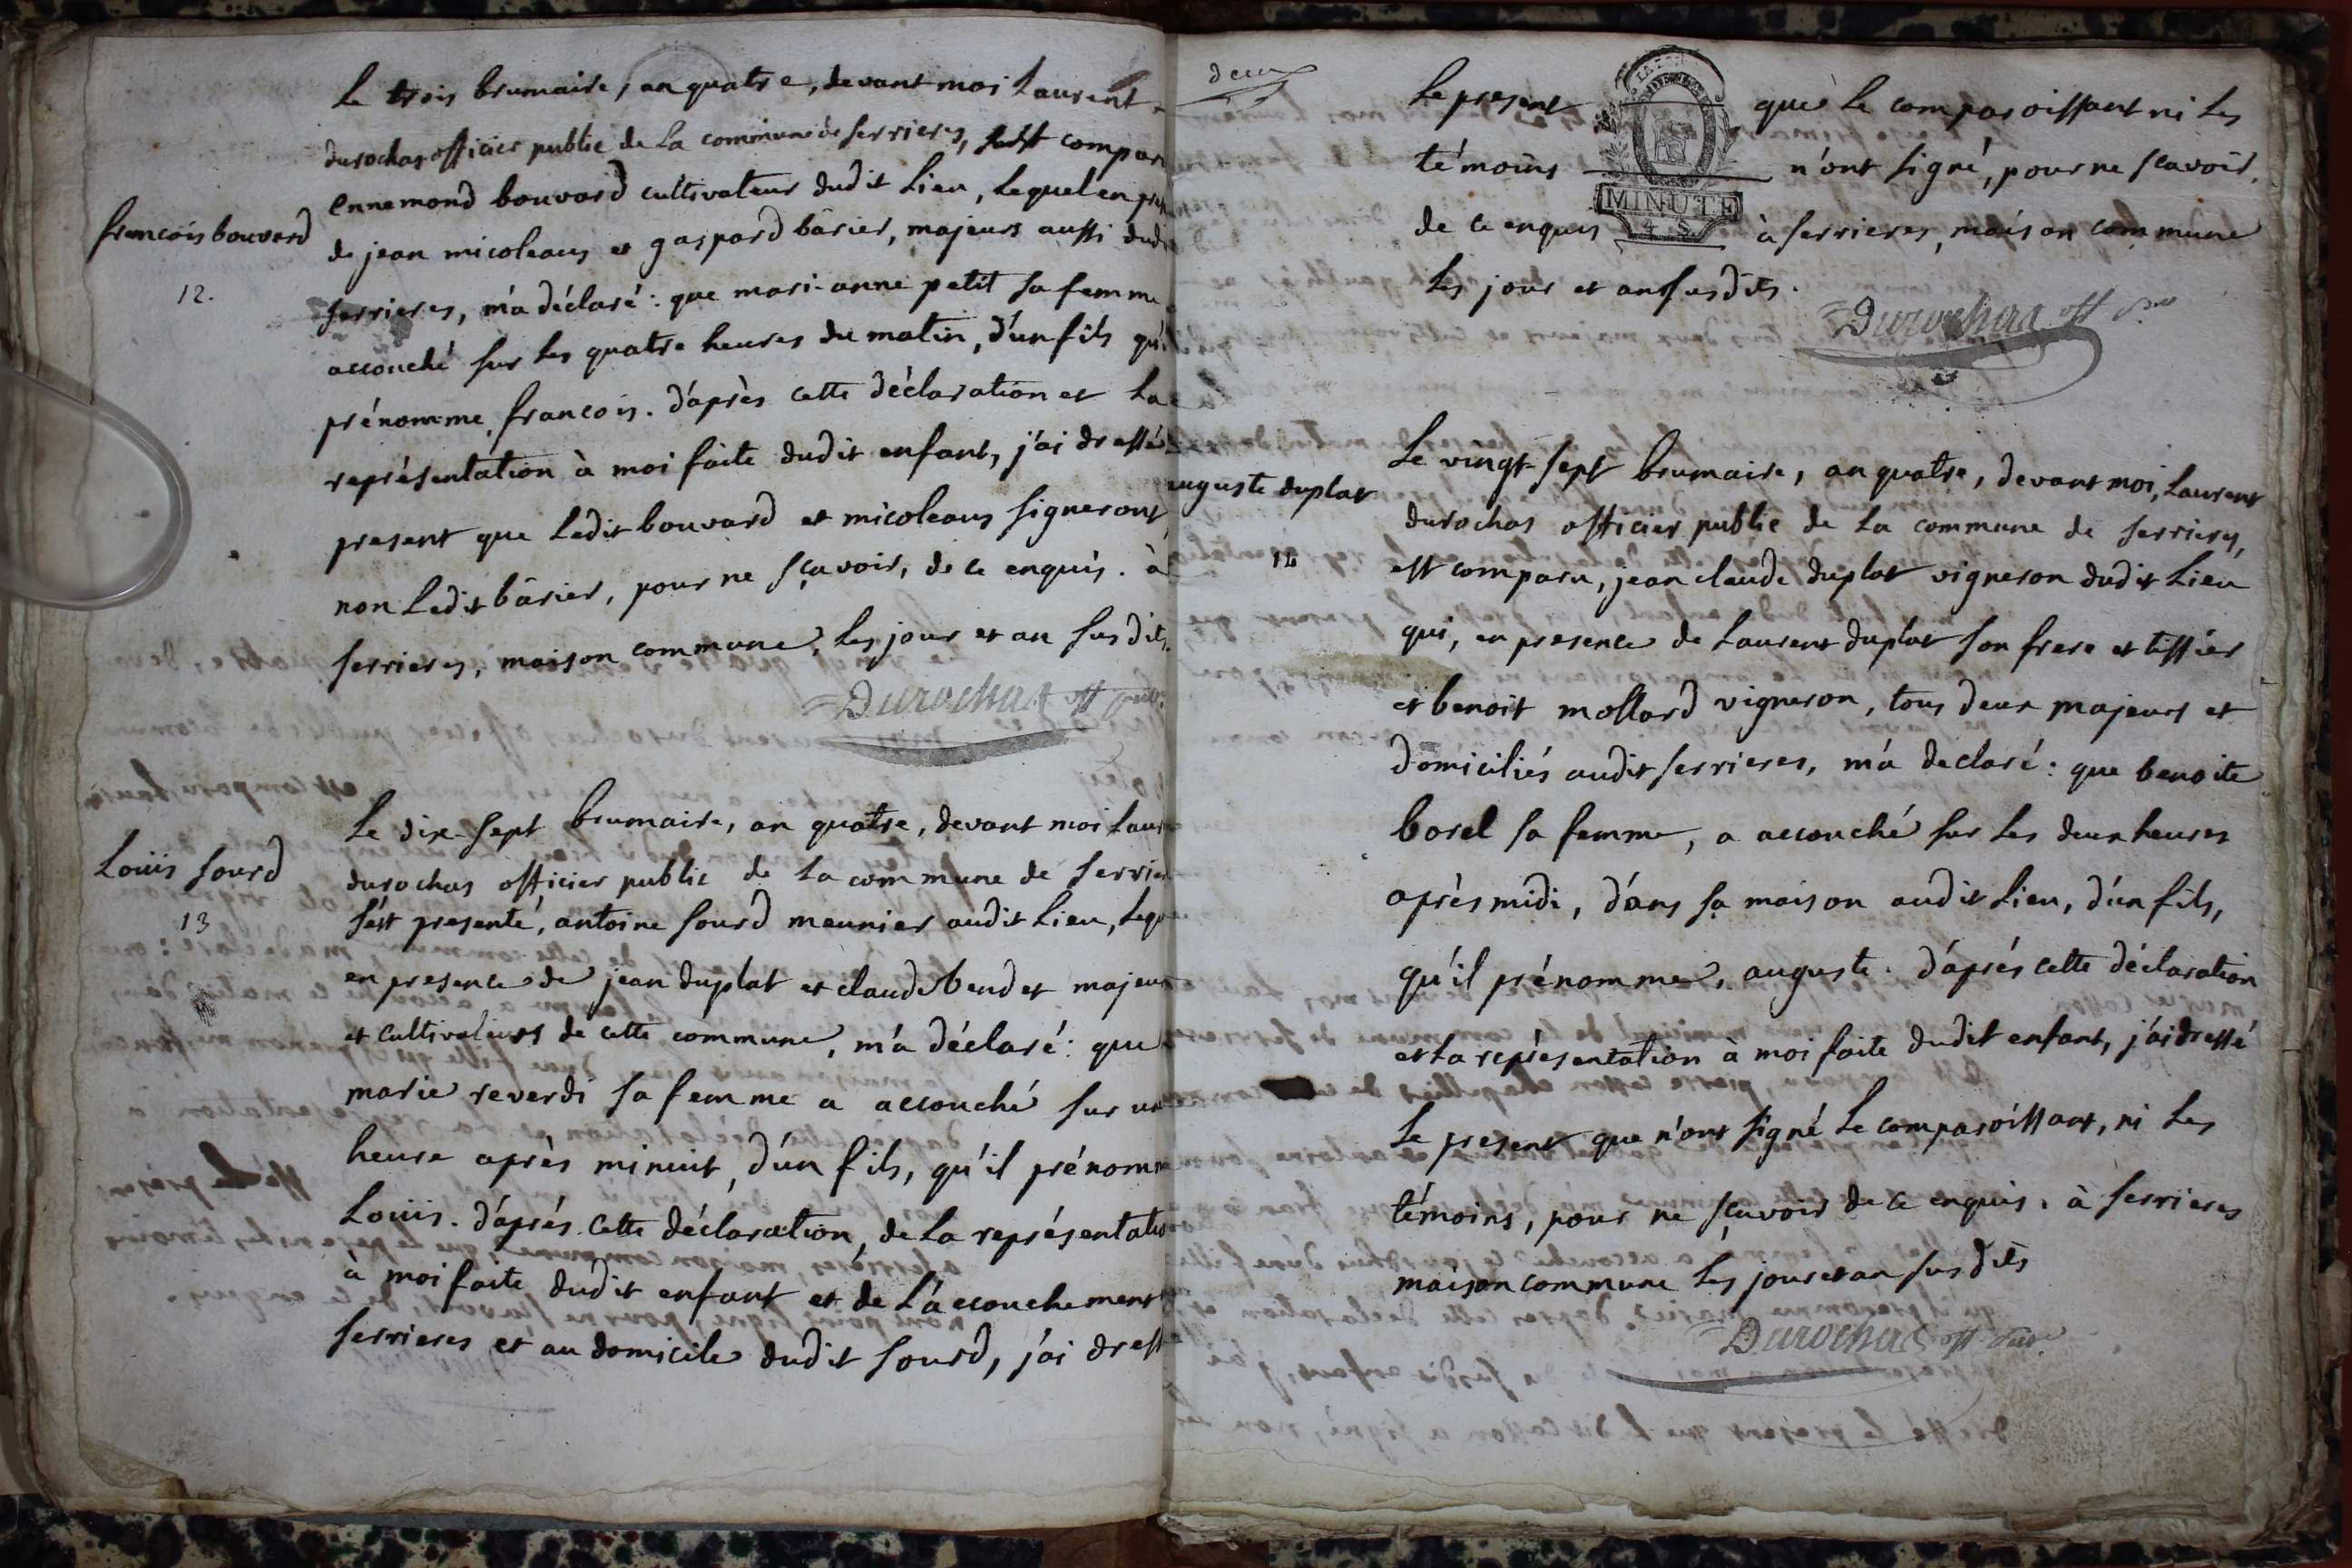 Le trois brumaire, an quatre, devant moi Laurent
durochas officier public de La commune de serrieres, est compar
Ennemond bouvard cultivateur dudit Lieu, Lequel en pres
francois bouvard
de jean micoleaus et gaspard bârier, majeurs aussi dud
12.
serrieres, m'a déclaré : que mari-anne petit sa femme
accouché sur les quatre heures du matin, d'un fils qu'i
prénomme, francois. d'après cette déclaration et La
représentation à moi faite dudit enfant, j'ai dressé
present que Ledit bouvard et micoleaus signeront,
non Ledit bârier, pour ne sçavoir, de ce enquis. à
serrieres, maison commune, Les jour et an susdits.
Durochas off pub.
Le dix-sept brumaire, an quatre, devant moi Laur
Louis sourd
durochas officier public de La commune de serrie
13
s'est presenté, antoine sourd meunier audit Lieu, Leq
en presence de jean duplat et claude beudet majeur
et cultivateurs de cette commune, m'a déclaré : que
marie reverdi sa femme a accouché sur un
heure après minuit, d'un fils, qu'il prénomm
Louis. d'après cette déclaration, de La représentatio
à moi faite dudit enfant et de L'accouchement
serrieres et au domicile dudit sourd, j'ai dress
deux
Le present que Le comparoissant ni Les
témoins n'ont signé, pour ne sçavoir,
MINUTE
de ce enquis à serrieres, maison commune
Les jour et an susdits.
Durochas off pub
Le vingt-sept brumaire, an quatre, devant moi, Laurent
auguste duplat
durochas officier public de La commune de serrieres,
14
est comparu, jean claude duplat vigneron dudit Lieu
qui, en presence de Laurent duplat son frere et tissier
et benoit mollard vigneron, tous deux majeurs et
domiciliés audit serrieres, m'a declaré : que benoite
borel sa femme, a accouché sur Les deux heures
après midi, d'ans sa maison audit Lieu, d'un fils,
qu'il prénomme, auguste. d'après cette déclaration
et La représentation à moi faite dudit enfant, j'ai dressé
Le present que n'ont signé Le comparoissant, ni Les
témoins, pour ne sçavoir de ce enquis. à serrieres
maison commune Les jour et an susdits
Durochas off pub.